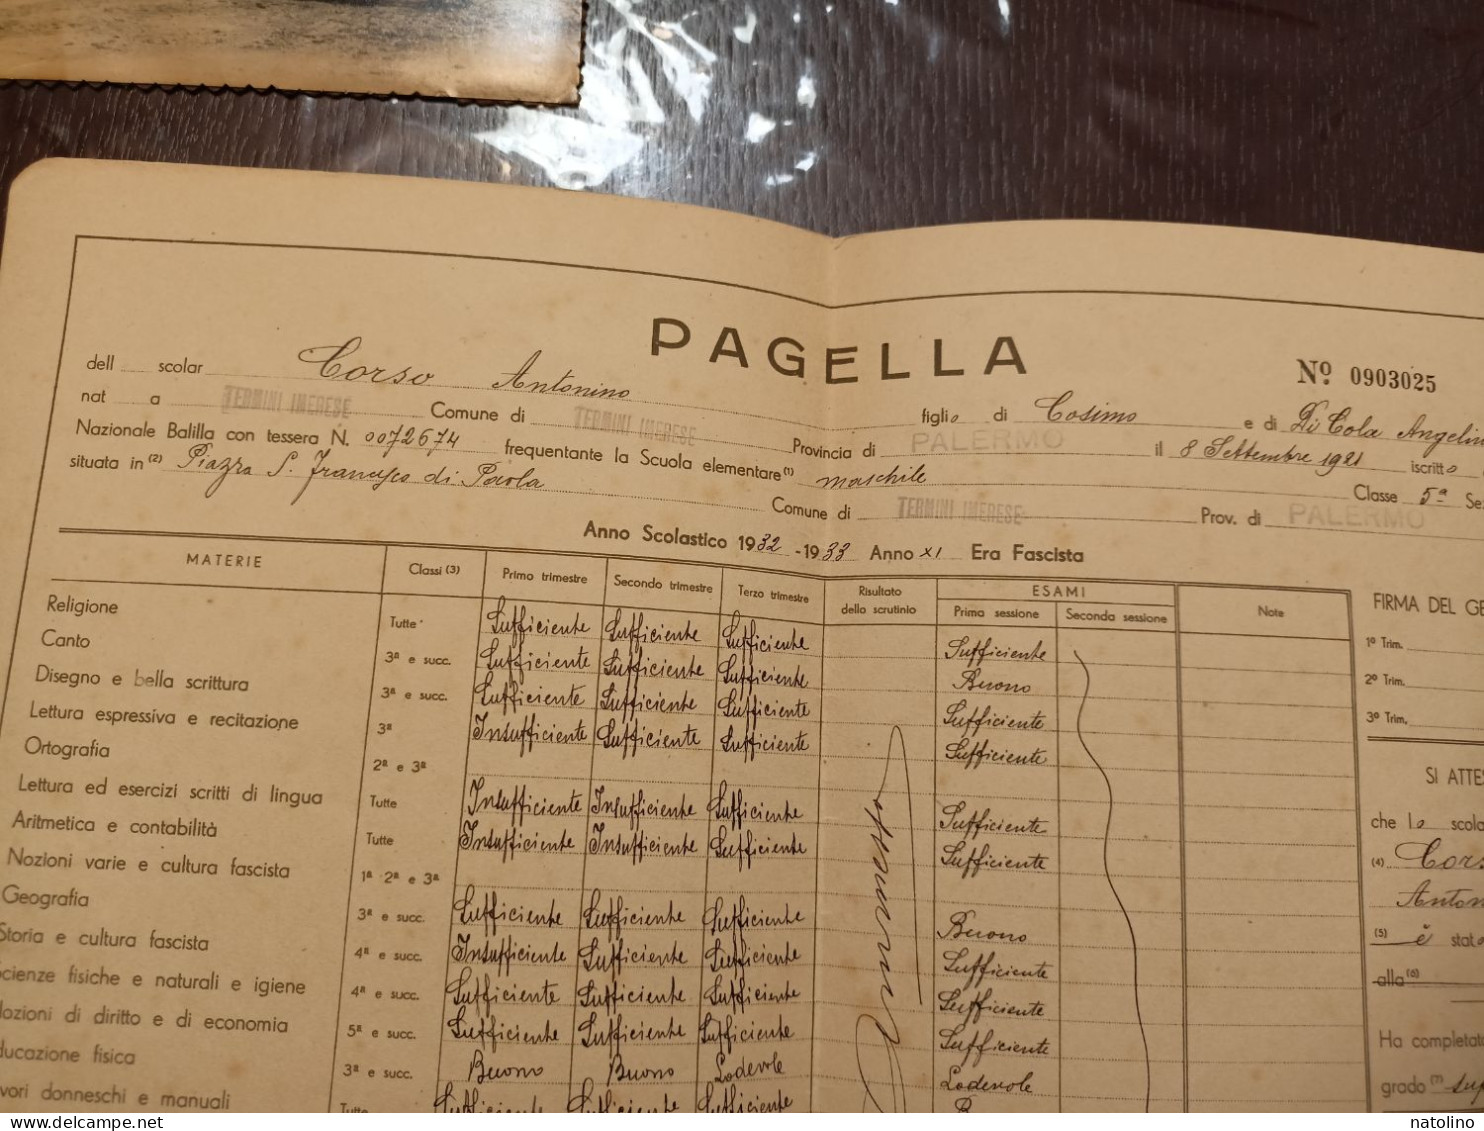 PAGELLA
Nº 0903025
dell scolar Corso Antonino figlio di Cosimo e di Di Cola Angelin
nat a TERMINI IMERESE Comune di TERMINI IMERESE Provincia di PALERMO il 8 Settembre 1921 iscritto
Nazionale Balilla con tessera N. 0072674 frequentante la Scuola elementare (1) maschile Classe 5ª Se
situata in (2) Piazza S. Francesco di Paola Comune di TERMINI IMERESE Prov. di PALERMO
Anno Scolastico 1932-1933 Anno XI Era Fascista
MATERIE Classi (3) Primo trimestre Secondo trimestre Terzo trimestre Risultato dello scrutinio ESAMI Prima sessione Seconda sessione Note
Religione Tutte Sufficiente Sufficiente Sufficiente Sufficiente
Canto 3ª e succ. Sufficiente Sufficiente Sufficiente Buono
Disegno e bella scrittura 3ª e succ. Sufficiente Sufficiente Sufficiente Sufficiente
Lettura espressiva e recitazione 3ª Insufficiente Sufficiente Sufficiente Sufficiente
Ortografia 2ª e 3ª
Lettura ed esercizi scritti di lingua Tutte Insufficiente Insufficiente Sufficiente Sufficiente
Aritmetica e contabilità Tutte Insufficiente Insufficiente Sufficiente Sufficiente
Nozioni varie e cultura fascista 1ª 2ª e 3ª
Geografia 3ª e succ. Sufficiente Sufficiente Sufficiente Buono
Storia e cultura fascista 4ª e succ. Insufficiente Sufficiente Sufficiente Sufficiente
cienze fisiche e naturali e igiene 4ª e succ. Sufficiente Sufficiente Sufficiente Sufficiente
ozioni di diritto e di economia 5ª e succ. Sufficiente Sufficiente Sufficiente Sufficiente
ducazione fisica 3ª e succ. Buono Buono Lodevole Lodevole
vori donneschi e manuali Tutte Sufficiente Sufficiente Sufficiente
FIRMA DEL GE
1º Trim.
2º Trim.
3º Trim.
SI ATTES
che lo scola
(4) Cors
Anton
(5) è stato
alla (6)
Ha completato
grado (7) sup
natolino